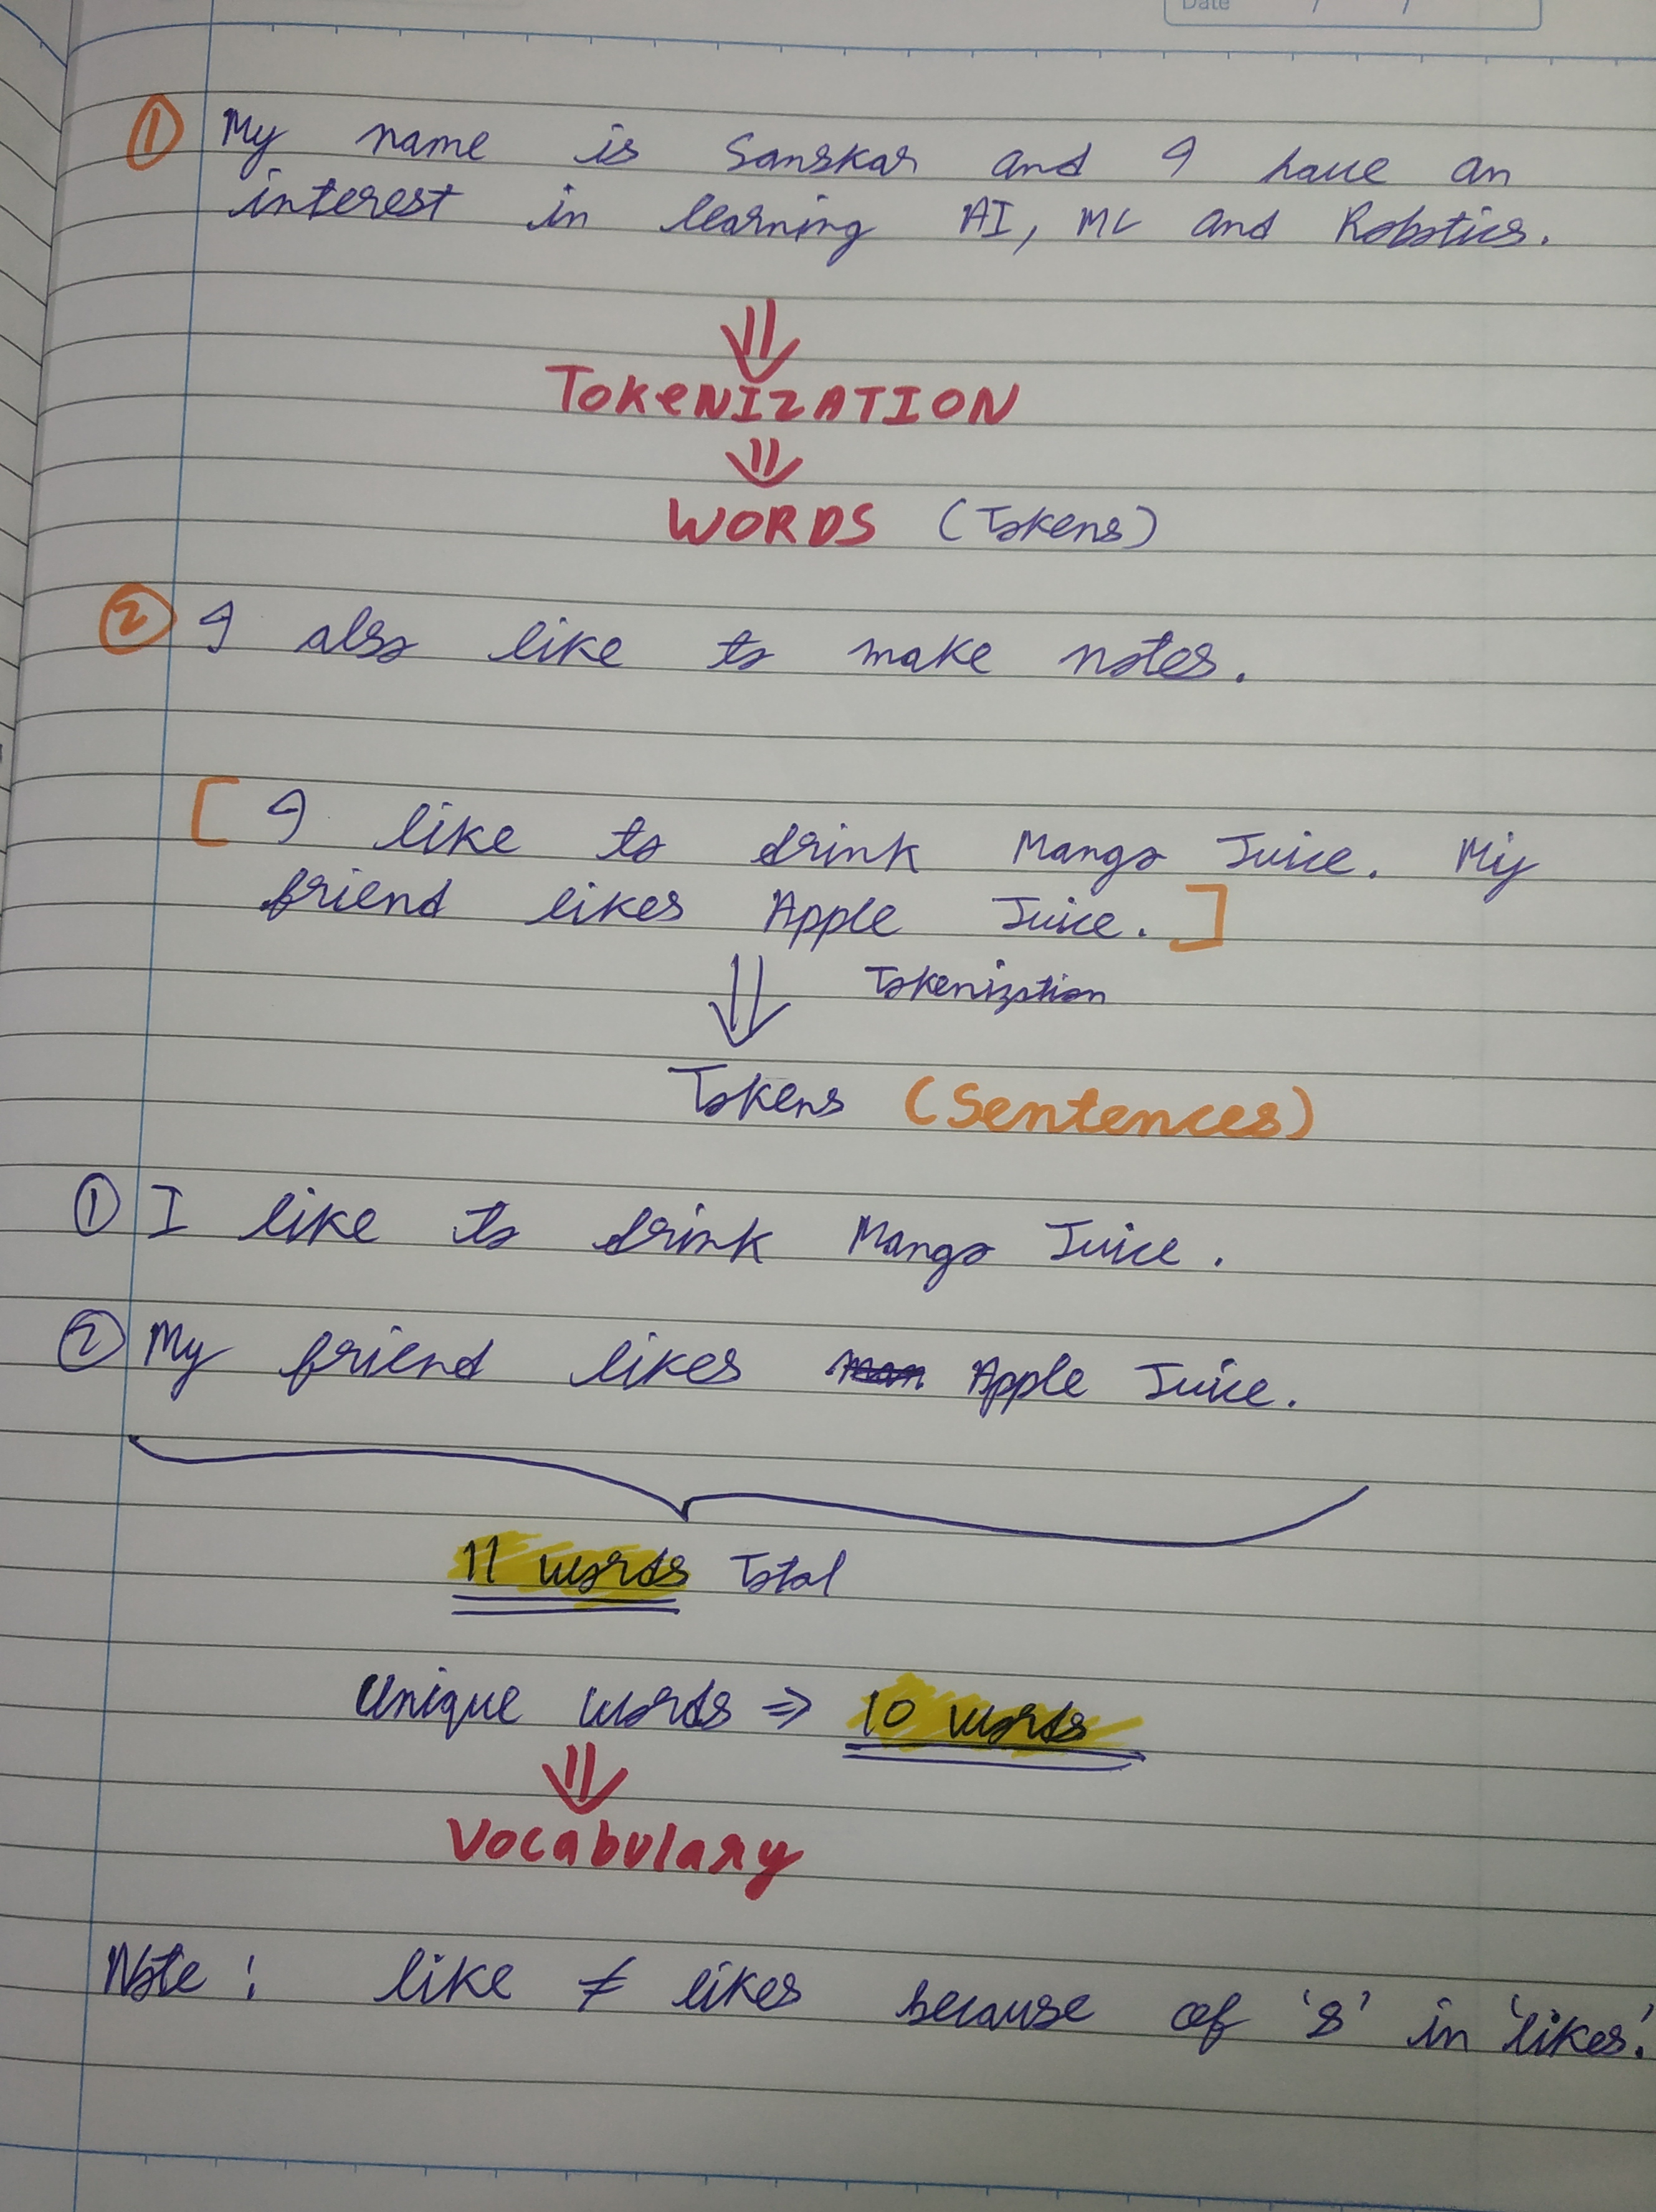 Date / /
① My name is Sanskar and I have an
interest in learning AI, ML and Robotics.
⇓
TOKENIZATION
⇓
WORDS (Tokens)
② I also like to make notes.
[ I like to drink Mango Juice. My
friend likes Apple Juice. ]
⇓ Tokenization
Tokens (Sentences)
① I like to drink Mango Juice.
② My friend likes Apple Juice.
11 words Total
Unique words ⇒ 10 words
⇓
Vocabulary
Note : like ≠ likes because of 's' in 'likes'.